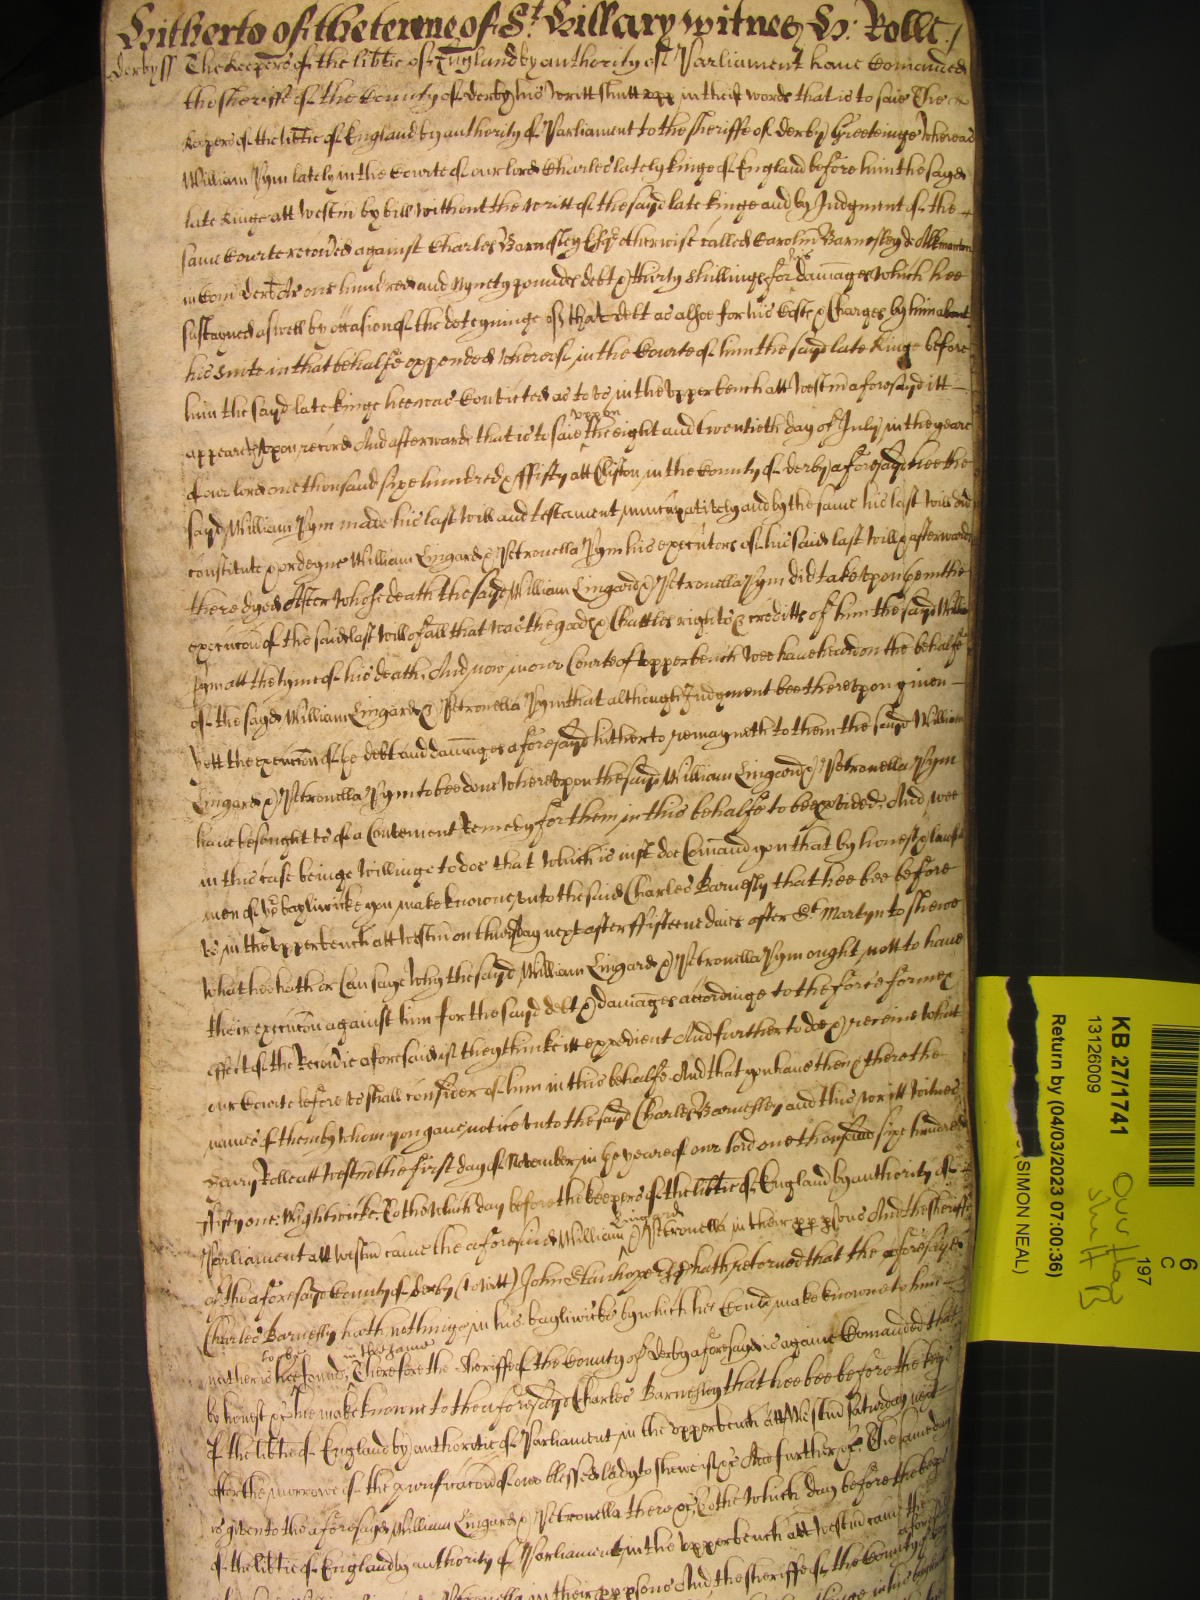 Hitherto of the terme of St. Hillary witnes H: Rolle /
Derby ss The keepers of the libtie of England by authority of Parliament have Comanded
the sheriffe of the County of derby his writt shutt upp in theis words that is to saie The
keepers of the libtie of England by authority of Parliament to the sheriffe of derby Greeteinge Whereas
William Pym lately in the Courte of our lord Charles lately kinge of England before him the sayd
late kinge att Westm by bill without the writt of the sayd late kinge and by Judgment of the
same Courte recoved against Charles Barnesley Esqr otherwise called Carolin Barnesley de Alkmonton
in Com Derb Ar one hundred and Nynety pounds debt & thirty shillings for his damages which hee
susteyned aswell by occasion of the deteyninge of that debt as alsoe for his Costs & Charges by him about
his suite in that behalfe expended whereof in the Courte of him the sayd late kinge before
him the sayd late kinge hee was Convicted as to us in the upper bench att Westm aforesayd itt
appeareth upon record And afterwards that is to saie uppon the eight and twentieth day of July in the yeare
of our lord one thousand sixe hundred & ffifty att Clifton in the County of derby aforesayd hee the
sayd William Pym made his last will and testament nuncupatively and by the same his last will did
constitute & ordeyne William Lingard & Petronella Pym his executors of his said last will & afterwards
there dyed After whose death the sayd William Lingard & Petronella Pym did take upon them the
execucon of the said last will of all that was the goods & Chattles rights & creditts of him the sayd William
Pym att the tyme of his death And now in our Courte of upper bench wee have heard on the behalfe
of the sayd William Lingard & Petronella Pym that although Judgment bee thereupon given
yett the execucon of ye debt and damages aforesayd hitherto remayneth to them the sayd William
Lingard & Petronella Pym to bee done whereupon the sayd William Lingard & Petronella Pym
have besought us of a Convenient Remedy for them in this behalfe to bee pvided. And wee
in this case beinge willinge to doe that which is just doe Comand you that by honest & lawfull
men of yor bayliwicke you make knowne unto the said Charles Barnesly that hee bee before
us in the upper bench att Westm on thursday next after ffifteene daies after St Martyn to shewe
what hee hath or Can saye why the sayd William Lingard & Petronella Pym ought nott to have
their execucon against him for the sayd debt & damages accordinge to the force forme &
effect of the Recovie aforesaid if they thinke itt expedient And further to doe & receive what
our Courte before us shall consider of him in this behalfe And that you have then & there the
names of them by whom you gave notice unto the sayd Charles Barnesley and this writt witnes
Henry Rolle att Westm the first day of November in ye yeare of our lord one thousand sixe hundred
ffifty one. Wightwicke. Att which day before the keepers of the libtie of England by authority of
Parliament att Westm came the aforesaid William Lingard & Petronella in their pper psons And the sheriffe
of the aforesayd County of derby (to witt) John Stanhope Esqr hath retorned that the aforesayd
Charles Barnesly hath nothinge in his bayliwicke by which hee Could make knowne to him
neither is hee to bee found in the same Therefore the sheriffe of the County of Derby aforesayd is againe Comanded that
by honest &c hee make knowne to the aforesayd Charles Barnesley that hee bee before the keeps
of the libtie of England by authoritie of Parliament in the upper bench att Westm saturday next
after the morrowe of the purificacon of our blessed lady to shewe if &c And further &c. The same day
is given to the aforesayd William Lingard & Petronella there &c. Att which day before the keeps
of the libtie of England by authority of Parliament in the upper bench att Westm came the aforesd
Petronella in their pper psons And the sheriffe of the County
KB 27/1741
13126009
Return by (04/03/2023 07:00:36)
(SIMON NEAL)
6
C
197